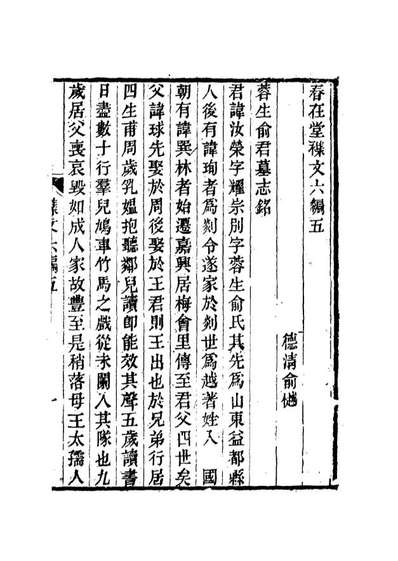 春在堂襍文六編五
德清俞樾
蓉生俞君墓志銘
君諱汝榮字耀宗別字蓉生俞氏其先爲山東益都縣
人後有諱珣者爲剡令遂家於剡世爲越著姓入 國
朝有諱巽林者始遷嘉興居梅會里傳至君父四世矣
父諱球先娶於周後娶於王君則王出也於兄弟行居
四生甫周歲乳媼抱聽鄰兒讀即能效其聲五歲讀書
日盡數十行羣兒鳩車竹馬之戲從未闌入其隊也九
歲居父喪哀毀如成人家故豐至是稍落母王太孺人
襍文六編五
一